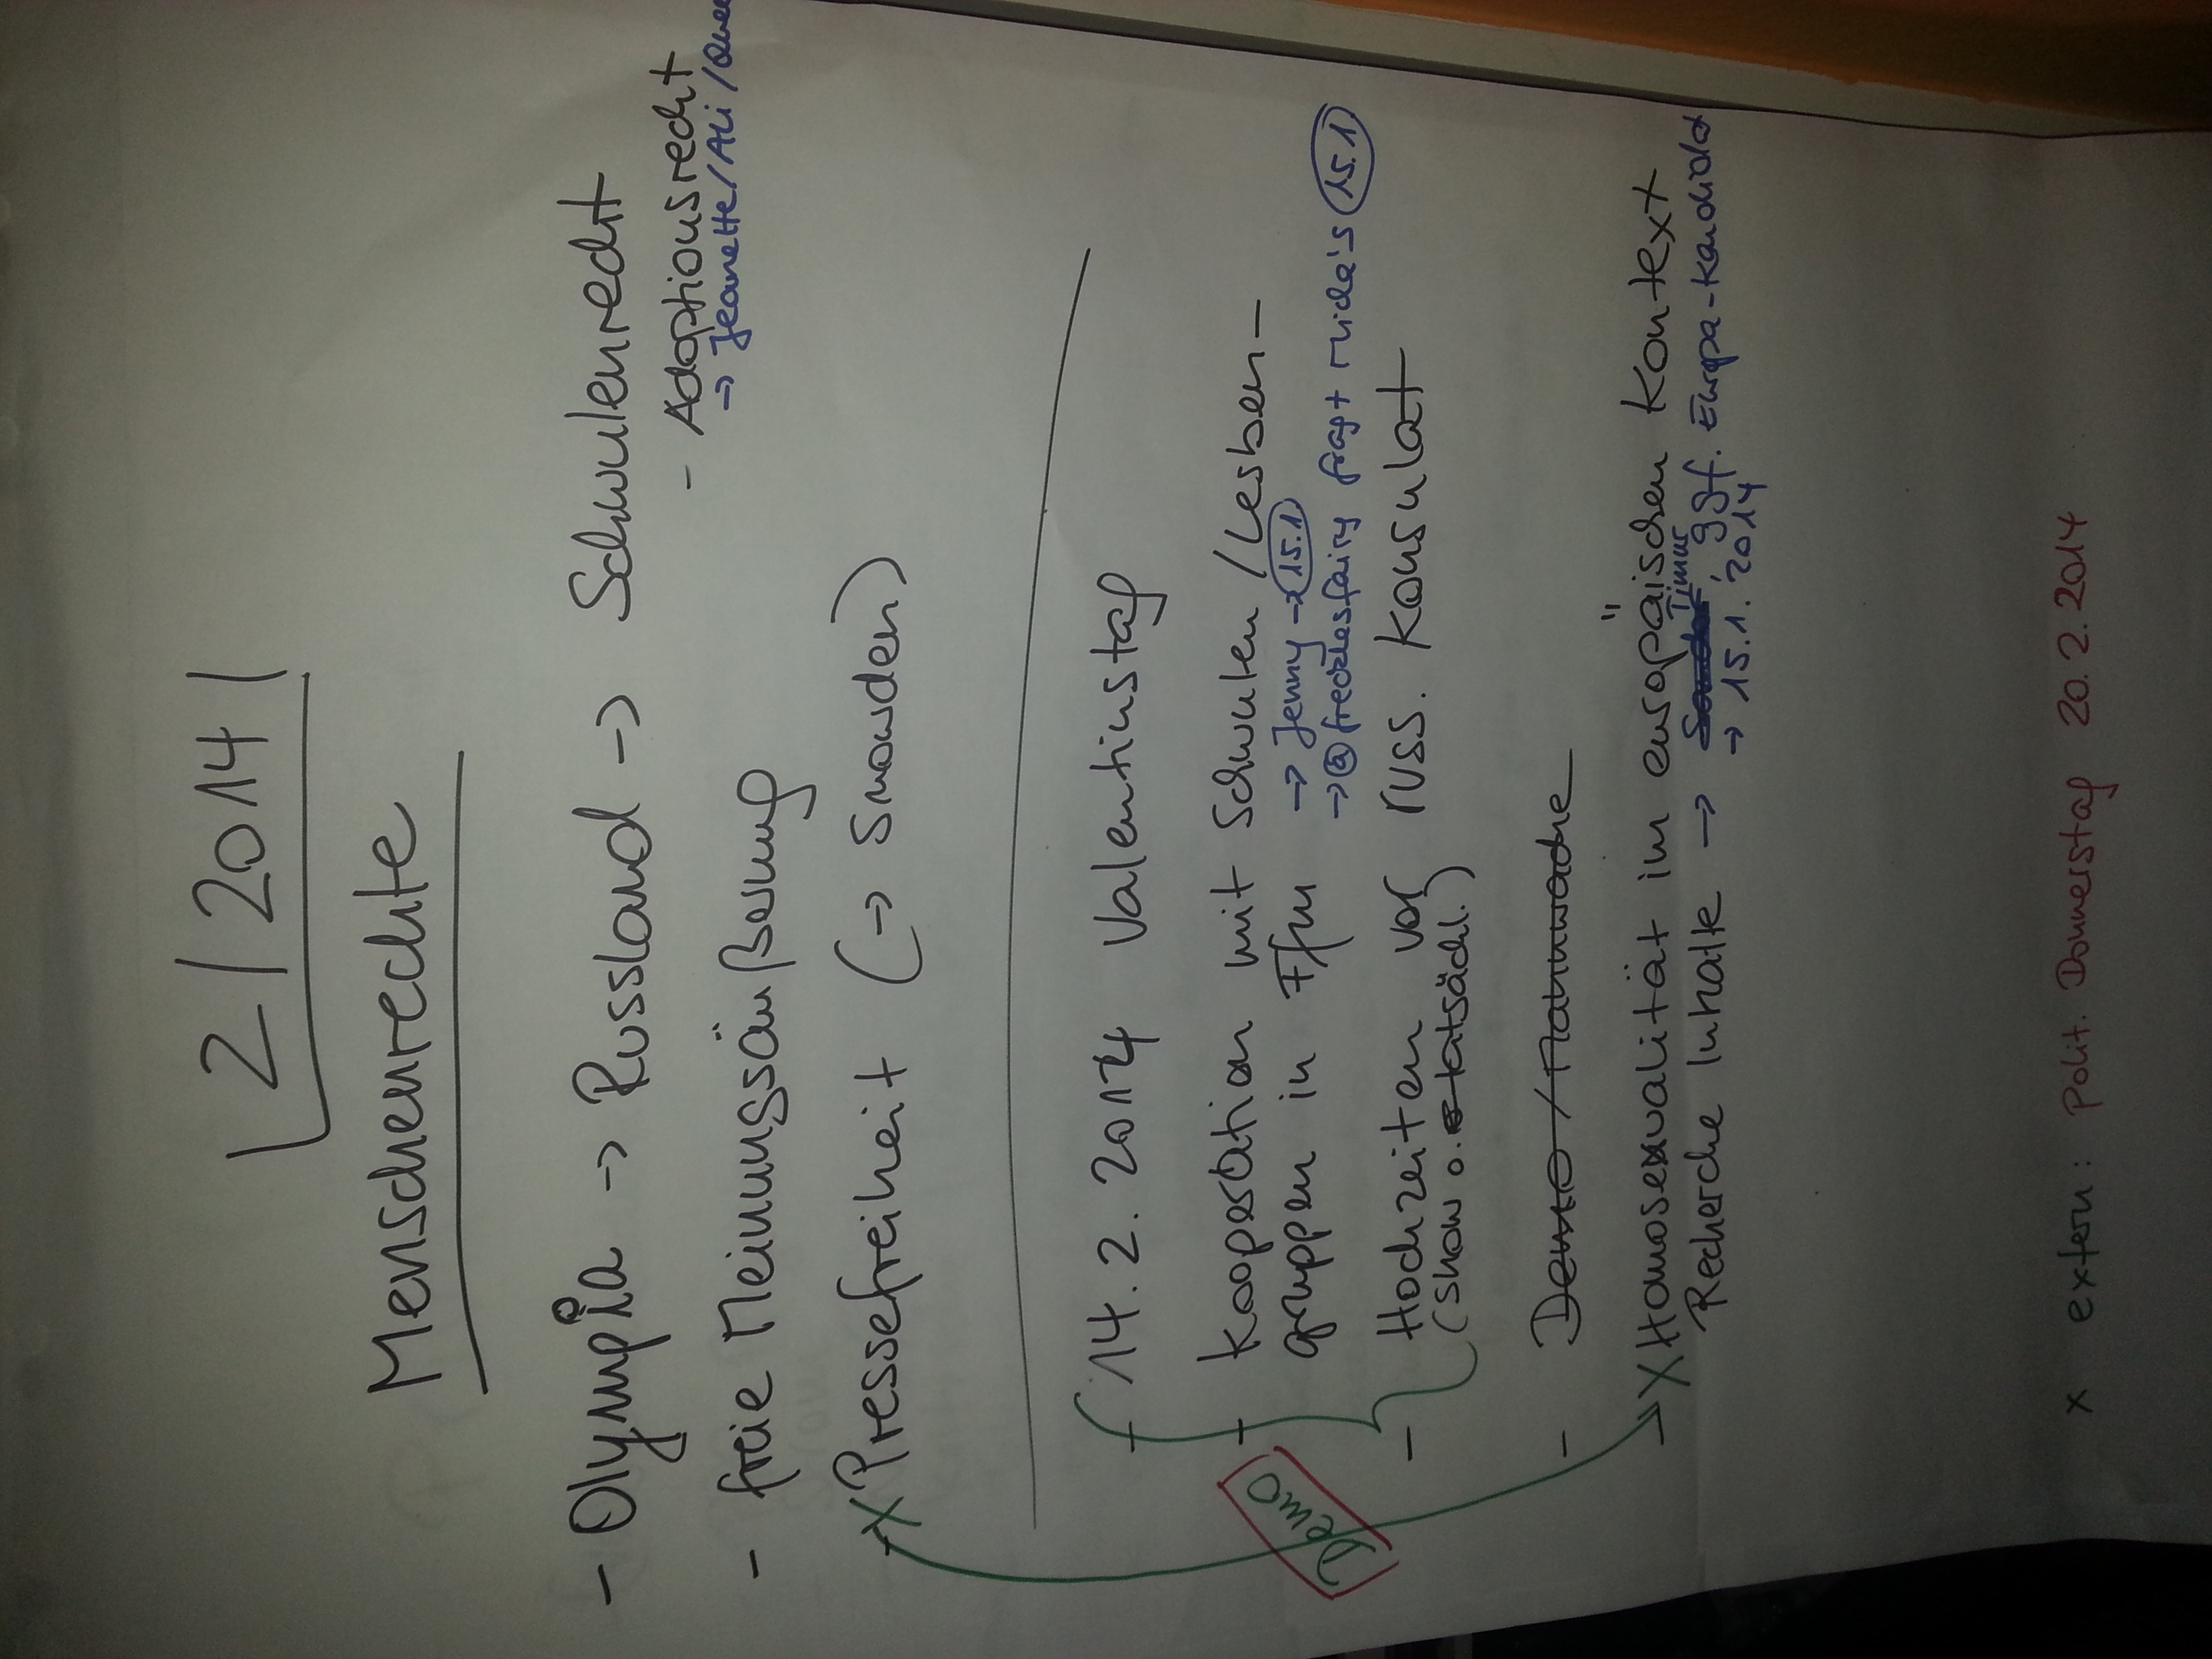 2 | 2014
Menschenrechte
- Olympia → Russland → Schwulenrecht
- Adoptionsrecht
→ Jeanette/Ali/
- freie Meinungsäußerung
- x Pressefreiheit (→ Snowden)
- 14.2.2014 Valentinstag
- Kooperation mit Schwulen/Lesben-
gruppen in Ffm → Jenny → 15.1
→ @fredlesfairy fragt 15.1
- Hochzeiten vor russ. Konsulat
(Show o. tatsächl.)
Demo
- Demo/Mahnwache
- x Homosexualität im europäischen Kontext
Recherche Inhalte → Timur, ggf. Europa-Kandidat
→ 15.1.2014
x extern: Polit. Donnerstag 20.2.2014